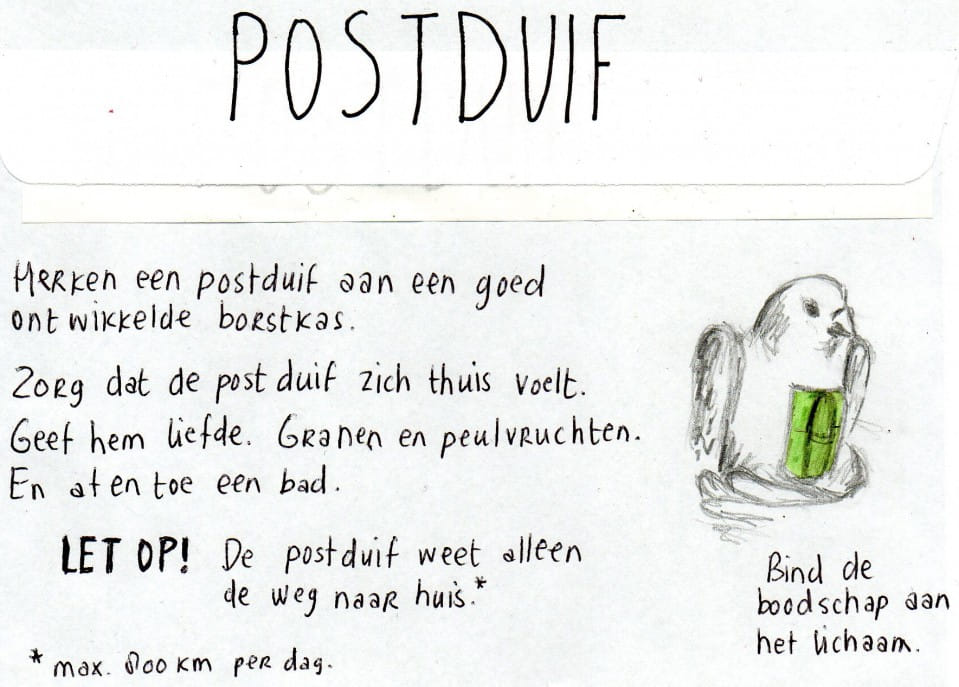 POSTDUIF
Herken een postduif aan een goed
ontwikkelde borstkas.
Zorg dat de postduif zich thuis voelt.
Geef hem liefde. Granen en peulvruchten.
En af en toe een bad.
LET OP! De postduif weet alleen
de weg naar huis.*
* max. 800 km per dag.
Bind de
boodschap aan
het lichaam.